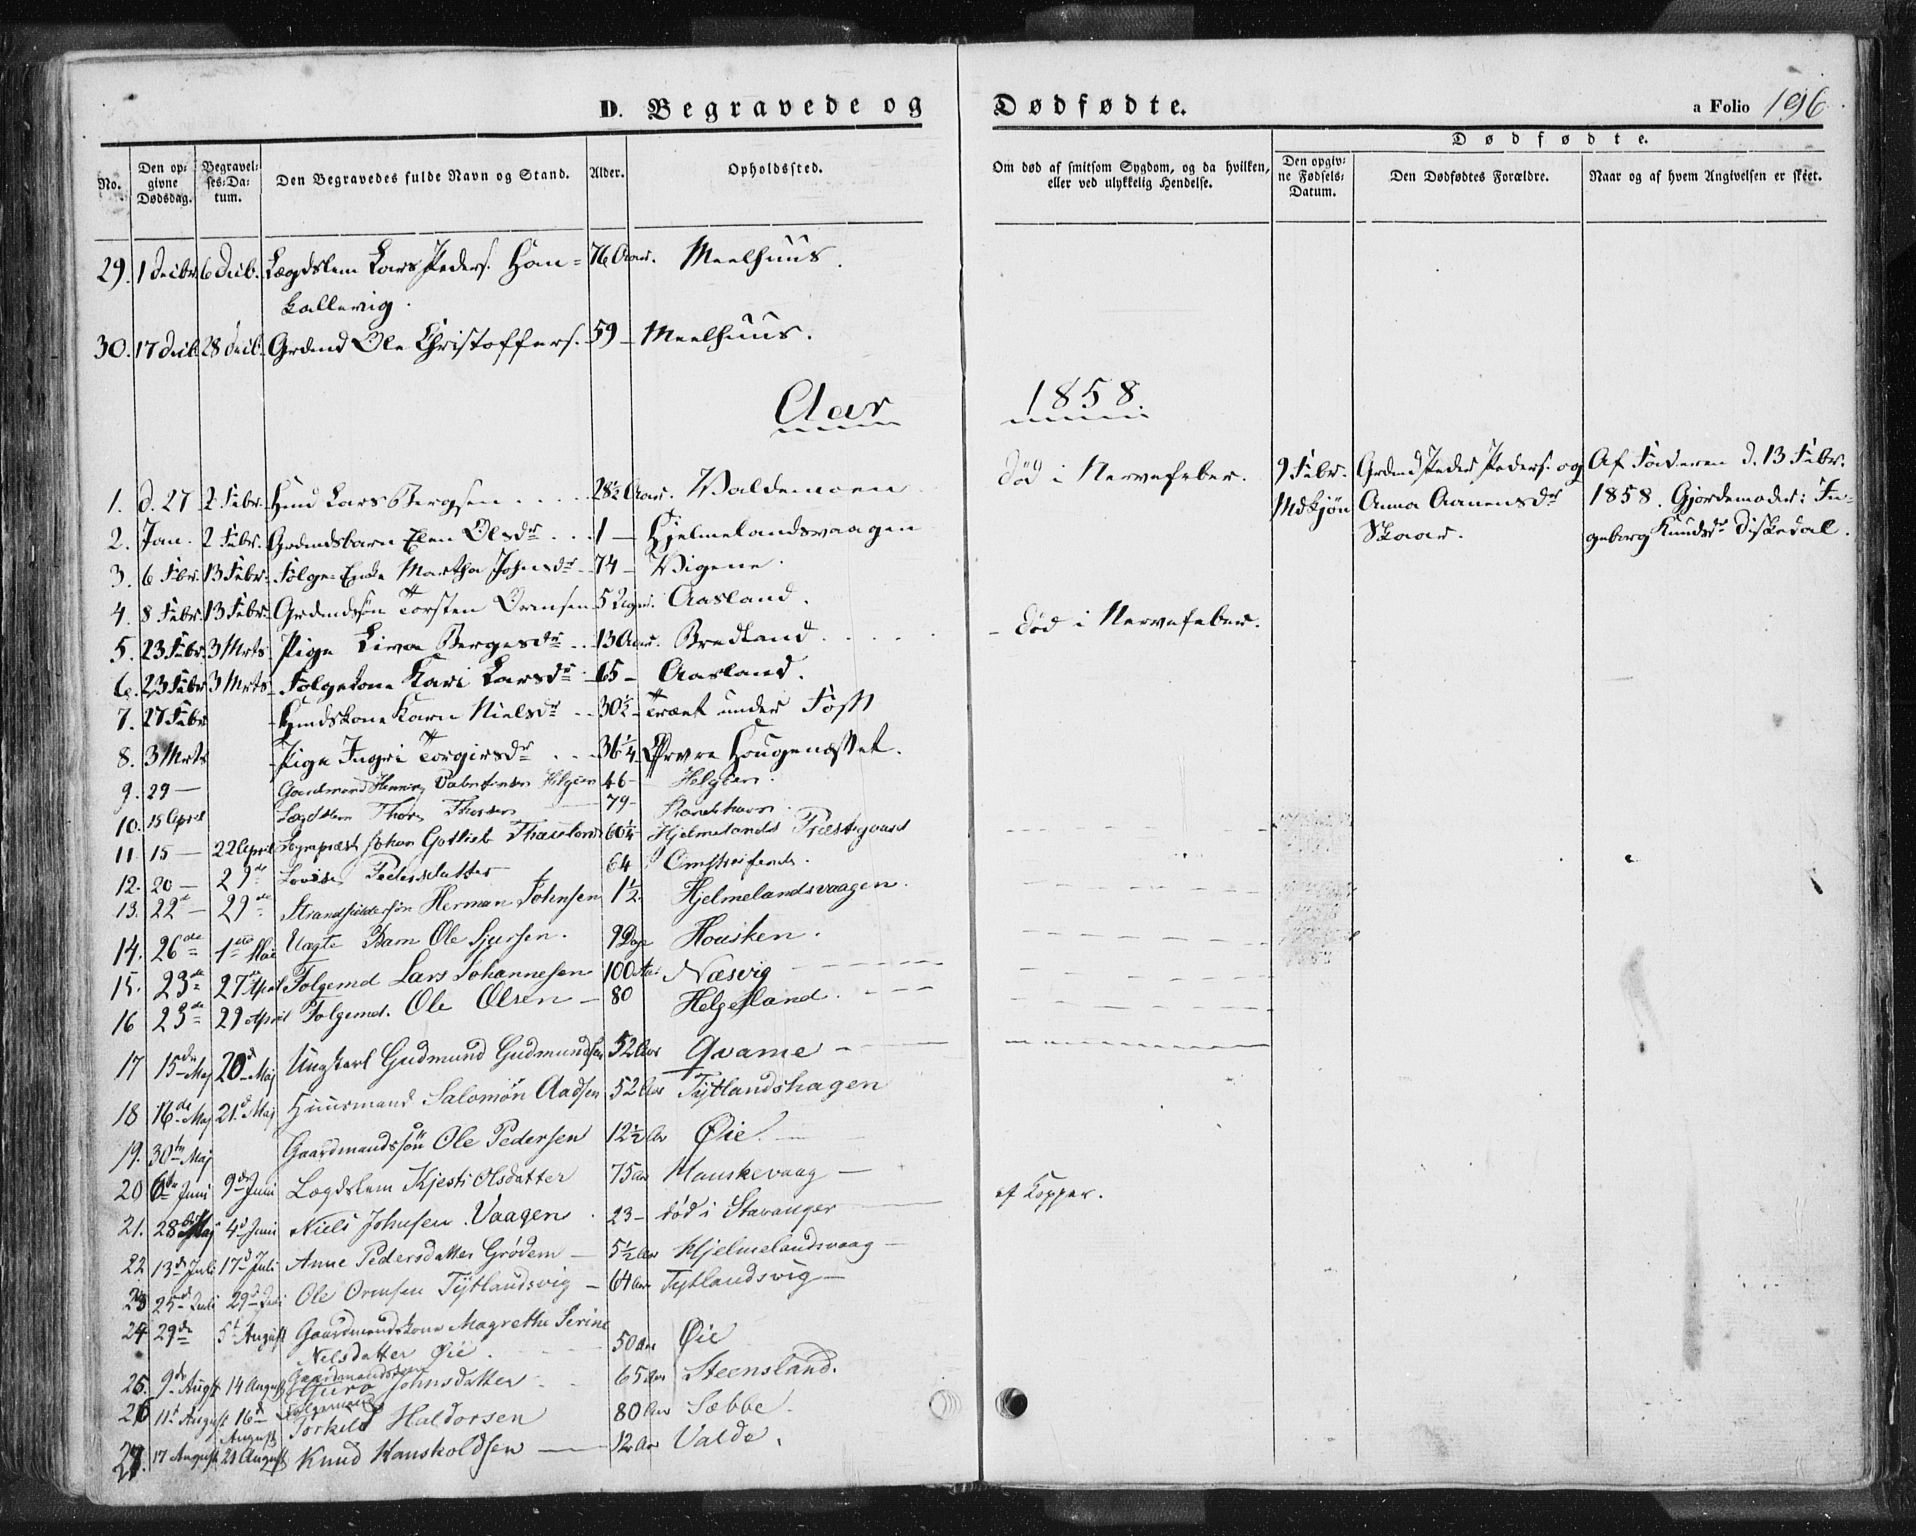 D. Begravede og Dødfødte.
a Folio 196
Dødfødte.
No.
Den opgivne Dødsdag.
Begravelses-Datum.
Den Begravedes fulde Navn og Stand.
Alder.
Opholdssted.
Om død af smitsom Sygdom, og da hvilken, eller ved ulykkelig Hendelse.
Den opgivne Fødsels-Datum.
Den Dødfødtes Forældre.
Naar og af hvem Angivelsen er skéet.
29. 1 Decbr. 6 Decb. Lægdslem Lars Peders. Han= 76 Aar. Meelhuus.
kallevig.
30. 17 Decb. 28 Decb. Grdmd Ole Christoffers. 59 – Meelhuus.
Aar 1858.
1. d. 27 2 Febr. Hmd Lars Bergsen 28½ Aar. Waldemoen død i Nervefeber.
9 Febr. Grdmd Peder Peders. og Af Faderen d. 13 Febr.
Mdkjøn Anna Aanensdr 1858. Gjordemoder: In-
Skaar. geborg Knudsdr Diskedal.
2. Jan. 2 Febr. Grdmdsbarn Elen Olsdr 1 – Hjelmelandsvaagen
3. 6 Fbr. 13 Febr. Folge-Enke Martha Johnsdr 74 – Vigene.
4. 8 Febr. 13 Febr. Grdmdsøn Torsten Ormsen 5 Aasland.
5. 23 Febr. 3 Mrts Pige Liva Bergesdr 13 Aar. Bredland. – død i Nervefeber.
6. 23 Febr. 3 Mrts Folgekone Kari Larsdr 65 – Aasland.
7. 27 Febr Hmdskone Karn Nielsdr 30½ – Træet under
8. 3 Mrts Pige Ingri Torgersdr 36¼ Hougenæsset.
9. 29 — Gaardmand Henning Helgøen 46 – Helgøen.
10. 18 April Lægdslem Thore 79 –
11. 15 — 22 April Sognepræst Johan Gotlieb 60¼ Hjelmelands Præstegaard
12. 20 — 29de Lovise Pedersdatter 64 Omstreifende.
13. 22de — 29de Herman Johnsen 1½. Hjelmelandsvaagen.
14. 26de 1ste Mai Uægte Barn Ole Sjursen. 9 Dage Housken.
15. 23de 27de April Folgemd Lars Johannesen 100 Aar Næsvig
16 23de 29 April Folgemd. Ole Olsen – 80 Helgesland.
17 15de Maj 20d Maj Ungkarl Gudmund Gudmundsen 52 Aar Qvame
18 16de Maj 21d Maj Huusmand Salomon Aadsen 52 Aar Tytlandshagen
19. 30te Maj Gaardmandssøn Ole Pedersen 12½ Aar Øie.
20 6de Juni 9de Juni Lægdslem Kjesti Olsdatter 75 Aar Hauskevaag –
21. 28de Maj 4d Juni Niels Johnsen Vaagen. 23 – død i Stavanger af Kopper.
22 13d Juli 17d Juli Anne Pedersdatter Grødem — 5½ Aar Hjelmelandsvaag –
23 25d Juli 29d Juli Ole Ormsen Tytlandsvig – 64 Aar Tytlandsvig –
24 29de 5t August Gaardmandskone Magrethe Serine
Nelsdatter Øie. 50 Aar Øie
25. 9de August 14 August Gaardmandskone
Guro Johnsdatter 65 Aar Steensland.
26 11t August 16d August Folgemand
Torkild Haldorsen 80 Aar Sæbbe
27. 17 August 21 August Knud Hauskoldsen — 12 Aar Valde.